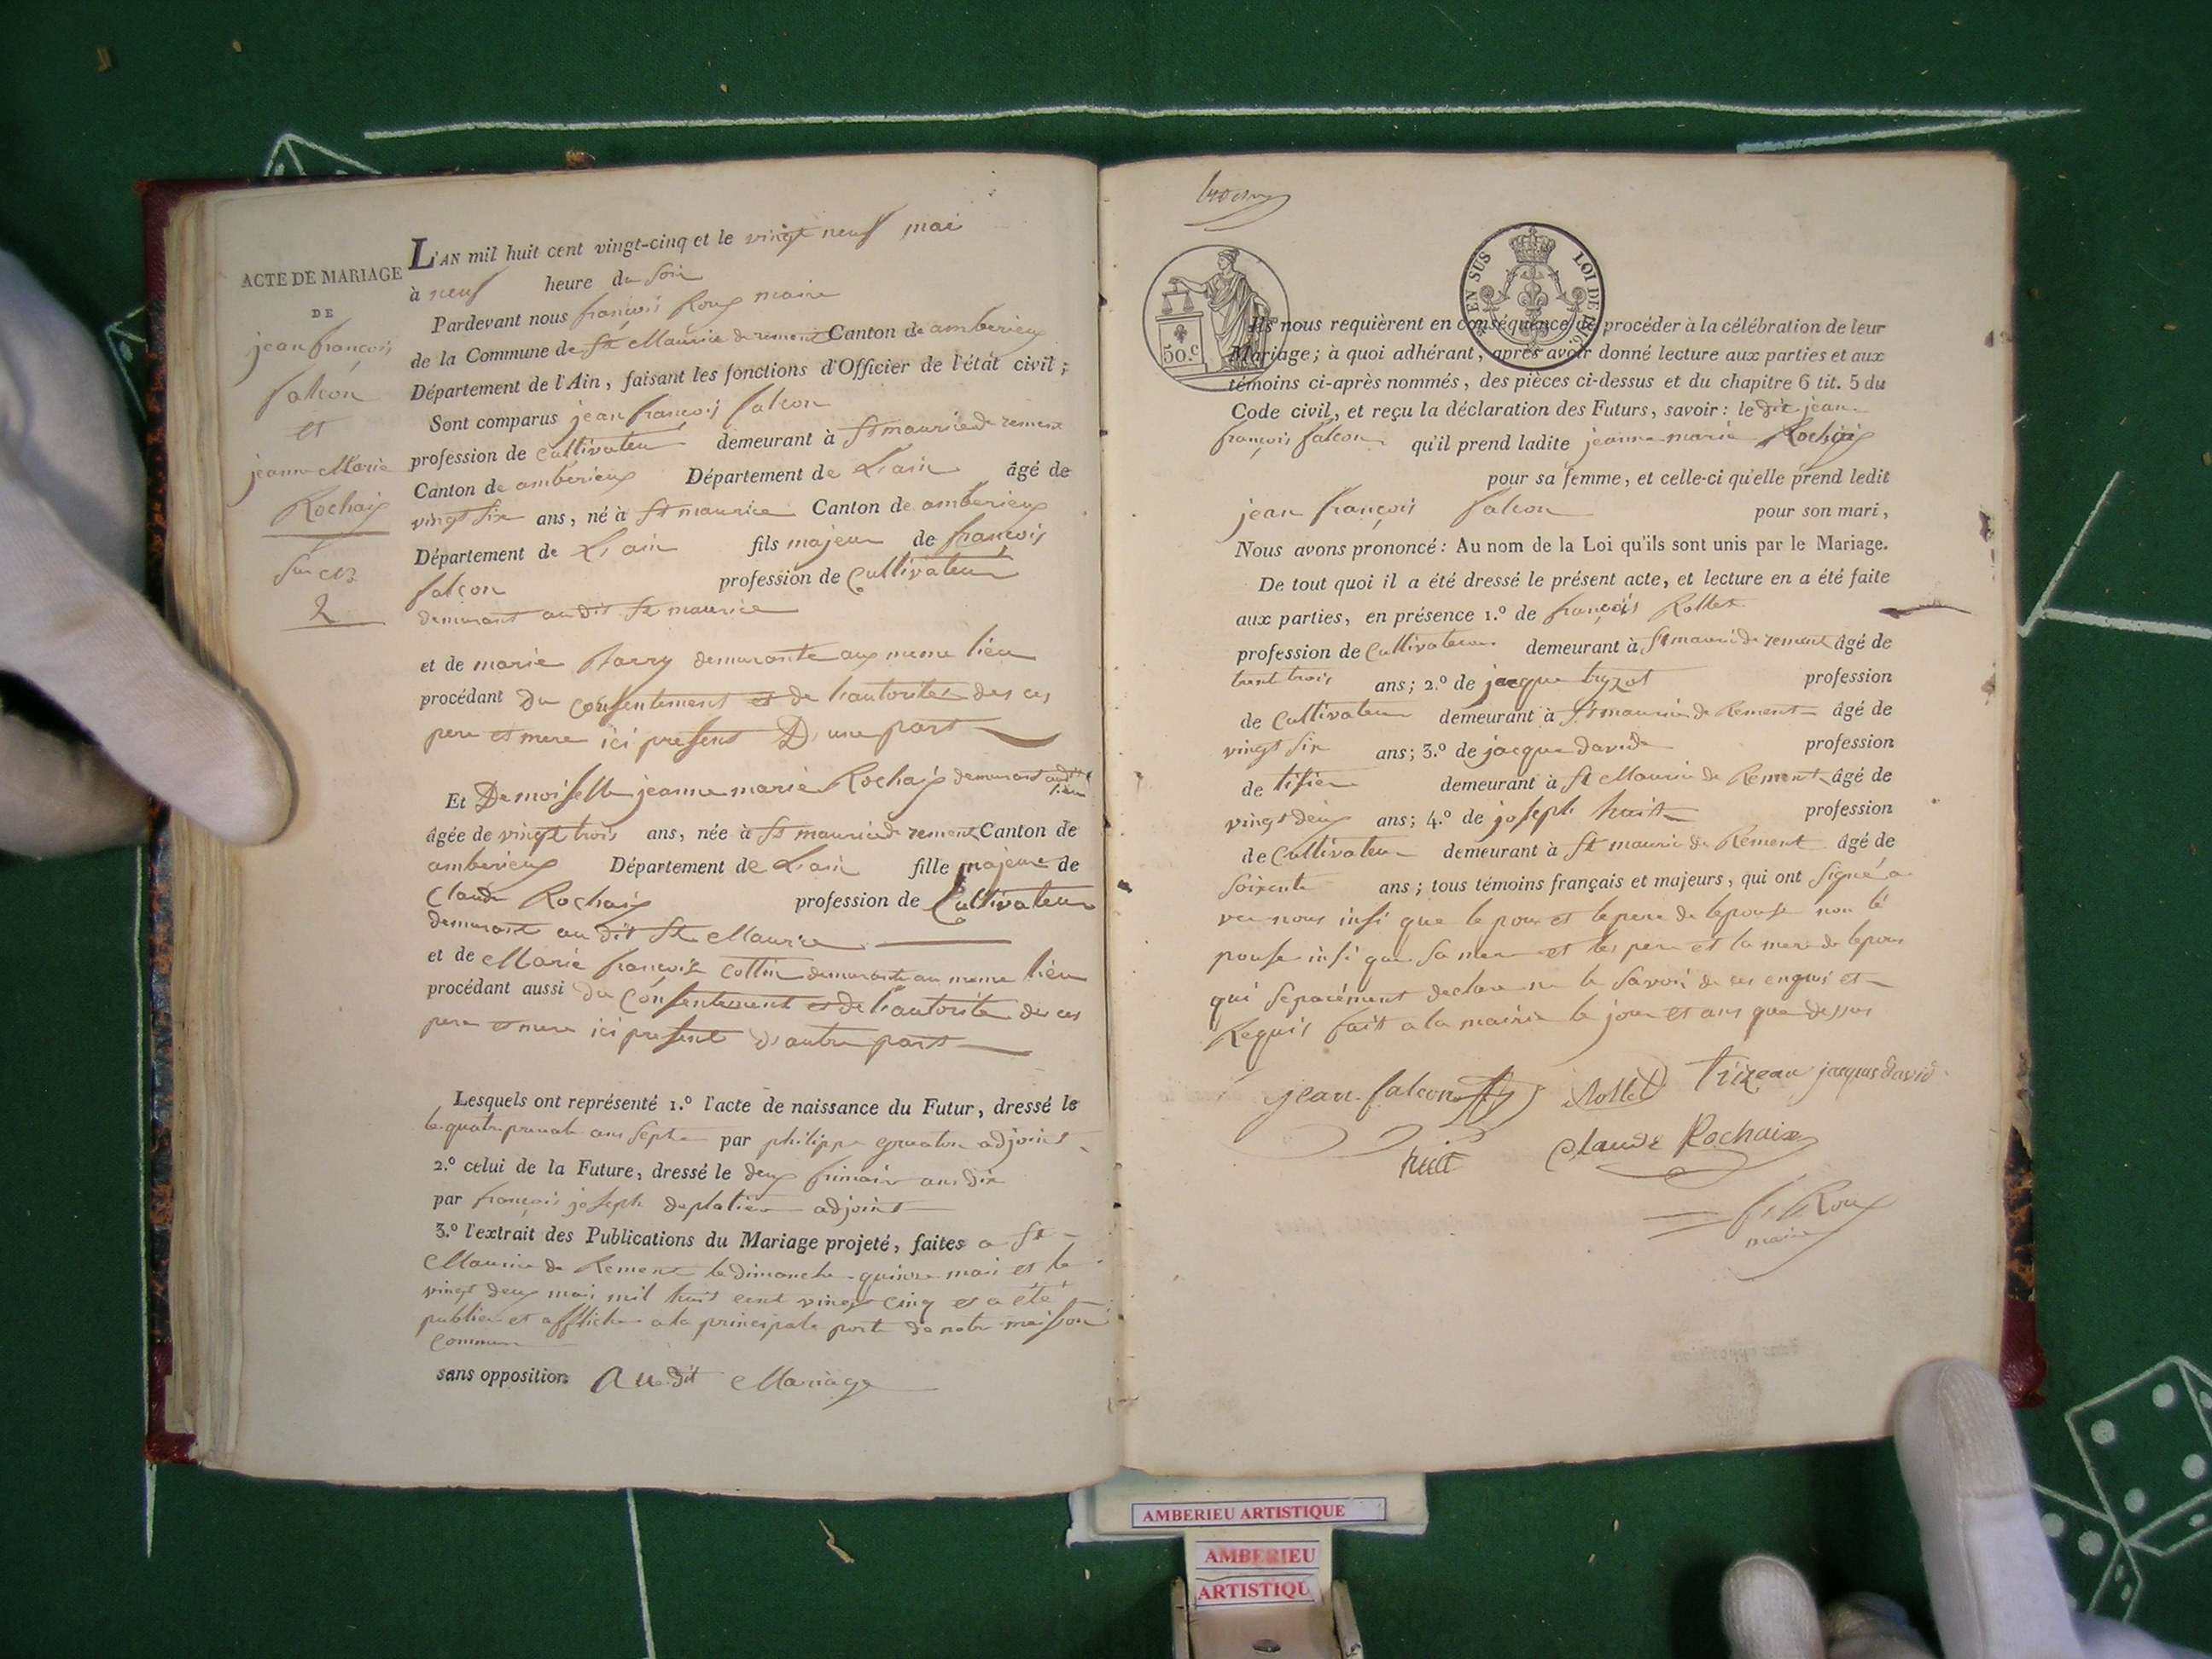 ACTE DE MARIAGE
DE
jean françois
falcon
et
jeanne Marie
Rochaix
2
L'AN mil huit cent vingt-cinq et le vingt neuf mai
à neuf heure du soir
Pardevant nous françois Roux maire
de la Commune de St Maurice de remens Canton de amberieux
Département de l'Ain, faisant les fonctions d'Officier de l'état civil ;
Sont comparus jean françois falcon
profession de Cultivateur demeurant à St maurice de remens
Canton de amberieux Département de L'ain âgé de
vingt six ans, né à St maurice Canton de amberieux
Département de L'ain fils majeur de françois
falcon profession de Cultivateur
demurant au dit St maurice
et de marie demurante au meme lieu
procédant du Consentement et de l'autorité des ces
pere et mere ici present D'une part
Et Demoiselle jeanne marie Rochaix demurant audit lieu
âgée de vingt trois ans, née à St maurice de remens Canton de
amberieux Département de L'ain fille majeure de
Claude Rochaix profession de Cultivateur
demurant au dit St Maurice
et de Marie françoise Collin demurante au meme lieu
procédant aussi du Consentement et de l'autorité des ces
pere et mere ici present d'autre part
Lesquels ont représenté 1.º l'acte de naissance du Futur, dressé le
le quatre an sept par philippe adjoint
2.º celui de la Future, dressé le deux frimaire an dix
par françois joseph deplatier adjoint
3.º l'extrait des Publications du Mariage projeté, faites a St
Maurice de Remens le dimanche quinze mai et le
vingt deux mai mil huit cent vingt cinq et a été
publier et afficher a la principale porte de notre maison
Commune
sans opposition Au dit Mariage
50.c
EN SUS
LOI DE
Ils nous requièrent en conséquence de procéder à la célébration de leur
Mariage; à quoi adhérant, après avoir donné lecture aux parties et aux
témoins ci-après nommés, des pièces ci-dessus et du chapitre 6 tit. 5 du
Code civil, et reçu la déclaration des Futurs, savoir : le dit jean
françois falcon qu'il prend ladite jeanne marie Rochaix
pour sa femme, et celle-ci qu'elle prend ledit
jean françois falcon pour son mari,
Nous avons prononcé : Au nom de la Loi qu'ils sont unis par le Mariage.
De tout quoi il a été dressé le présent acte, et lecture en a été faite
aux parties, en présence 1.º de françois Rollet
profession de Cultivateur demeurant à St mauri de remens âgé de
trent trois ans; 2.º de jacque tryzot profession
de Cultivateur demeurant à St maurice de Remens âgé de
vingt six ans; 3.º de jacque david profession
de tisier demeurant à St Maurice de Remens âgé de
vingt deux ans; 4.º de joseph huit profession
de Cultivateur demeurant à St mauri de Remens âgé de
soixente ans ; tous témoins français et majeurs, qui ont signé a
vec nous insi que lepoux et le pere de lepouse non lé
pouse insi que sa mere et les pere et la mere de lepoux
qui separément declare ne le savoir de ces enquis et
Requis fait a la mairie le jour et ans que dessus
jean falcon
Rollet
Trizeau
jacques david
huit
Claude Rochaix
f. Roux
maire
AMBERIEU ARTISTIQUE
AMBERIEU
ARTISTIQU